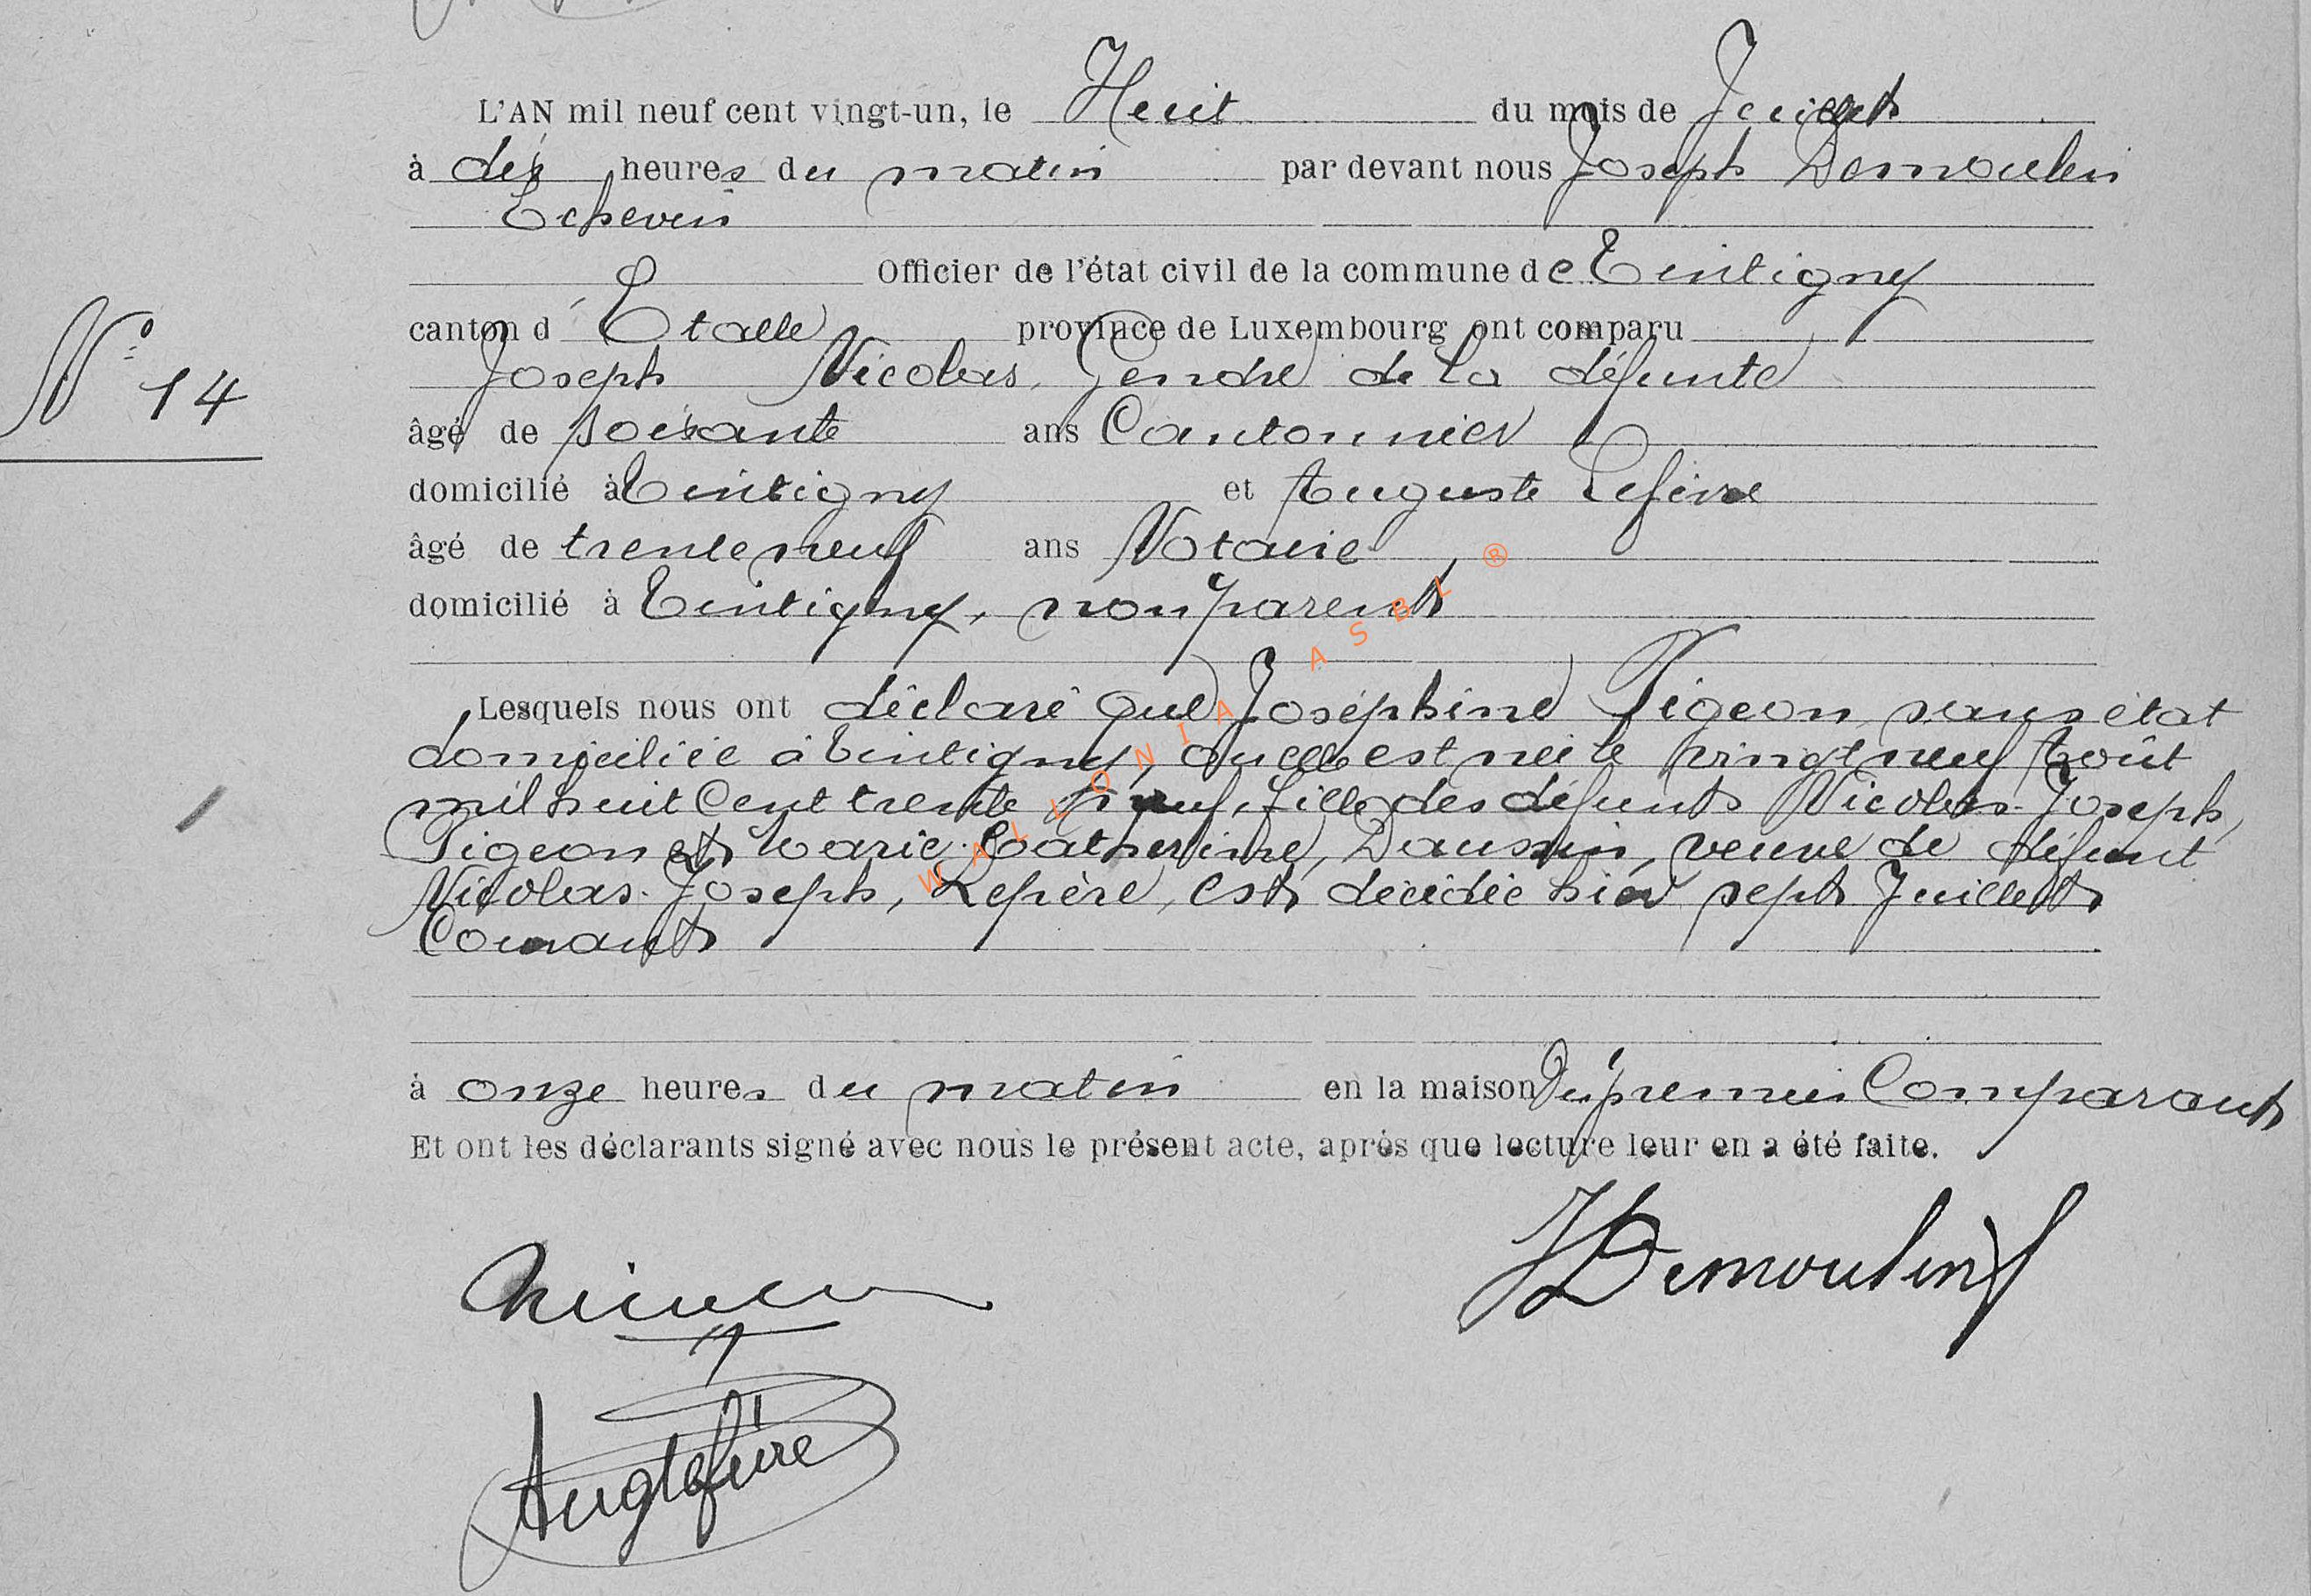 L'AN mil neuf cent vingt-un, le Huit du mois de Juillet
à dix heures du matin par devant nous Joseph Demoulin
Echevin
Officier de l'état civil de la commune de Tintigny
canton d'Etalle province de Luxembourg ont comparu
Joseph Nicolas, Gendre de la défunte
N° 14
âgé de soixante ans Cantonnier
domicilié à Tintigny et Auguste Lefèvre
âgé de trente neuf ans Notaire
domicilié à Tintigny, non parent
Lesquels nous ont déclaré que Joséphine Pigeon, sans état
domiciliée à Tintigny, où elle est née le vingt neuf Août
mil huit Cent trente neuf, fille des défunts Nicolas-Joseph,
Pigeon et Marie-Catherine, Daussin, veuve de défunt
Nicolas-Joseph, Lepère, est décédée hier sept Juillet
Courant
à onze heures du matin en la maison du premier Comparant
Et ont les déclarants signé avec nous le présent acte, après que lecture leur en a été faite.
JDemoulin
AugLefèvre
WALLONIA ASBL ®